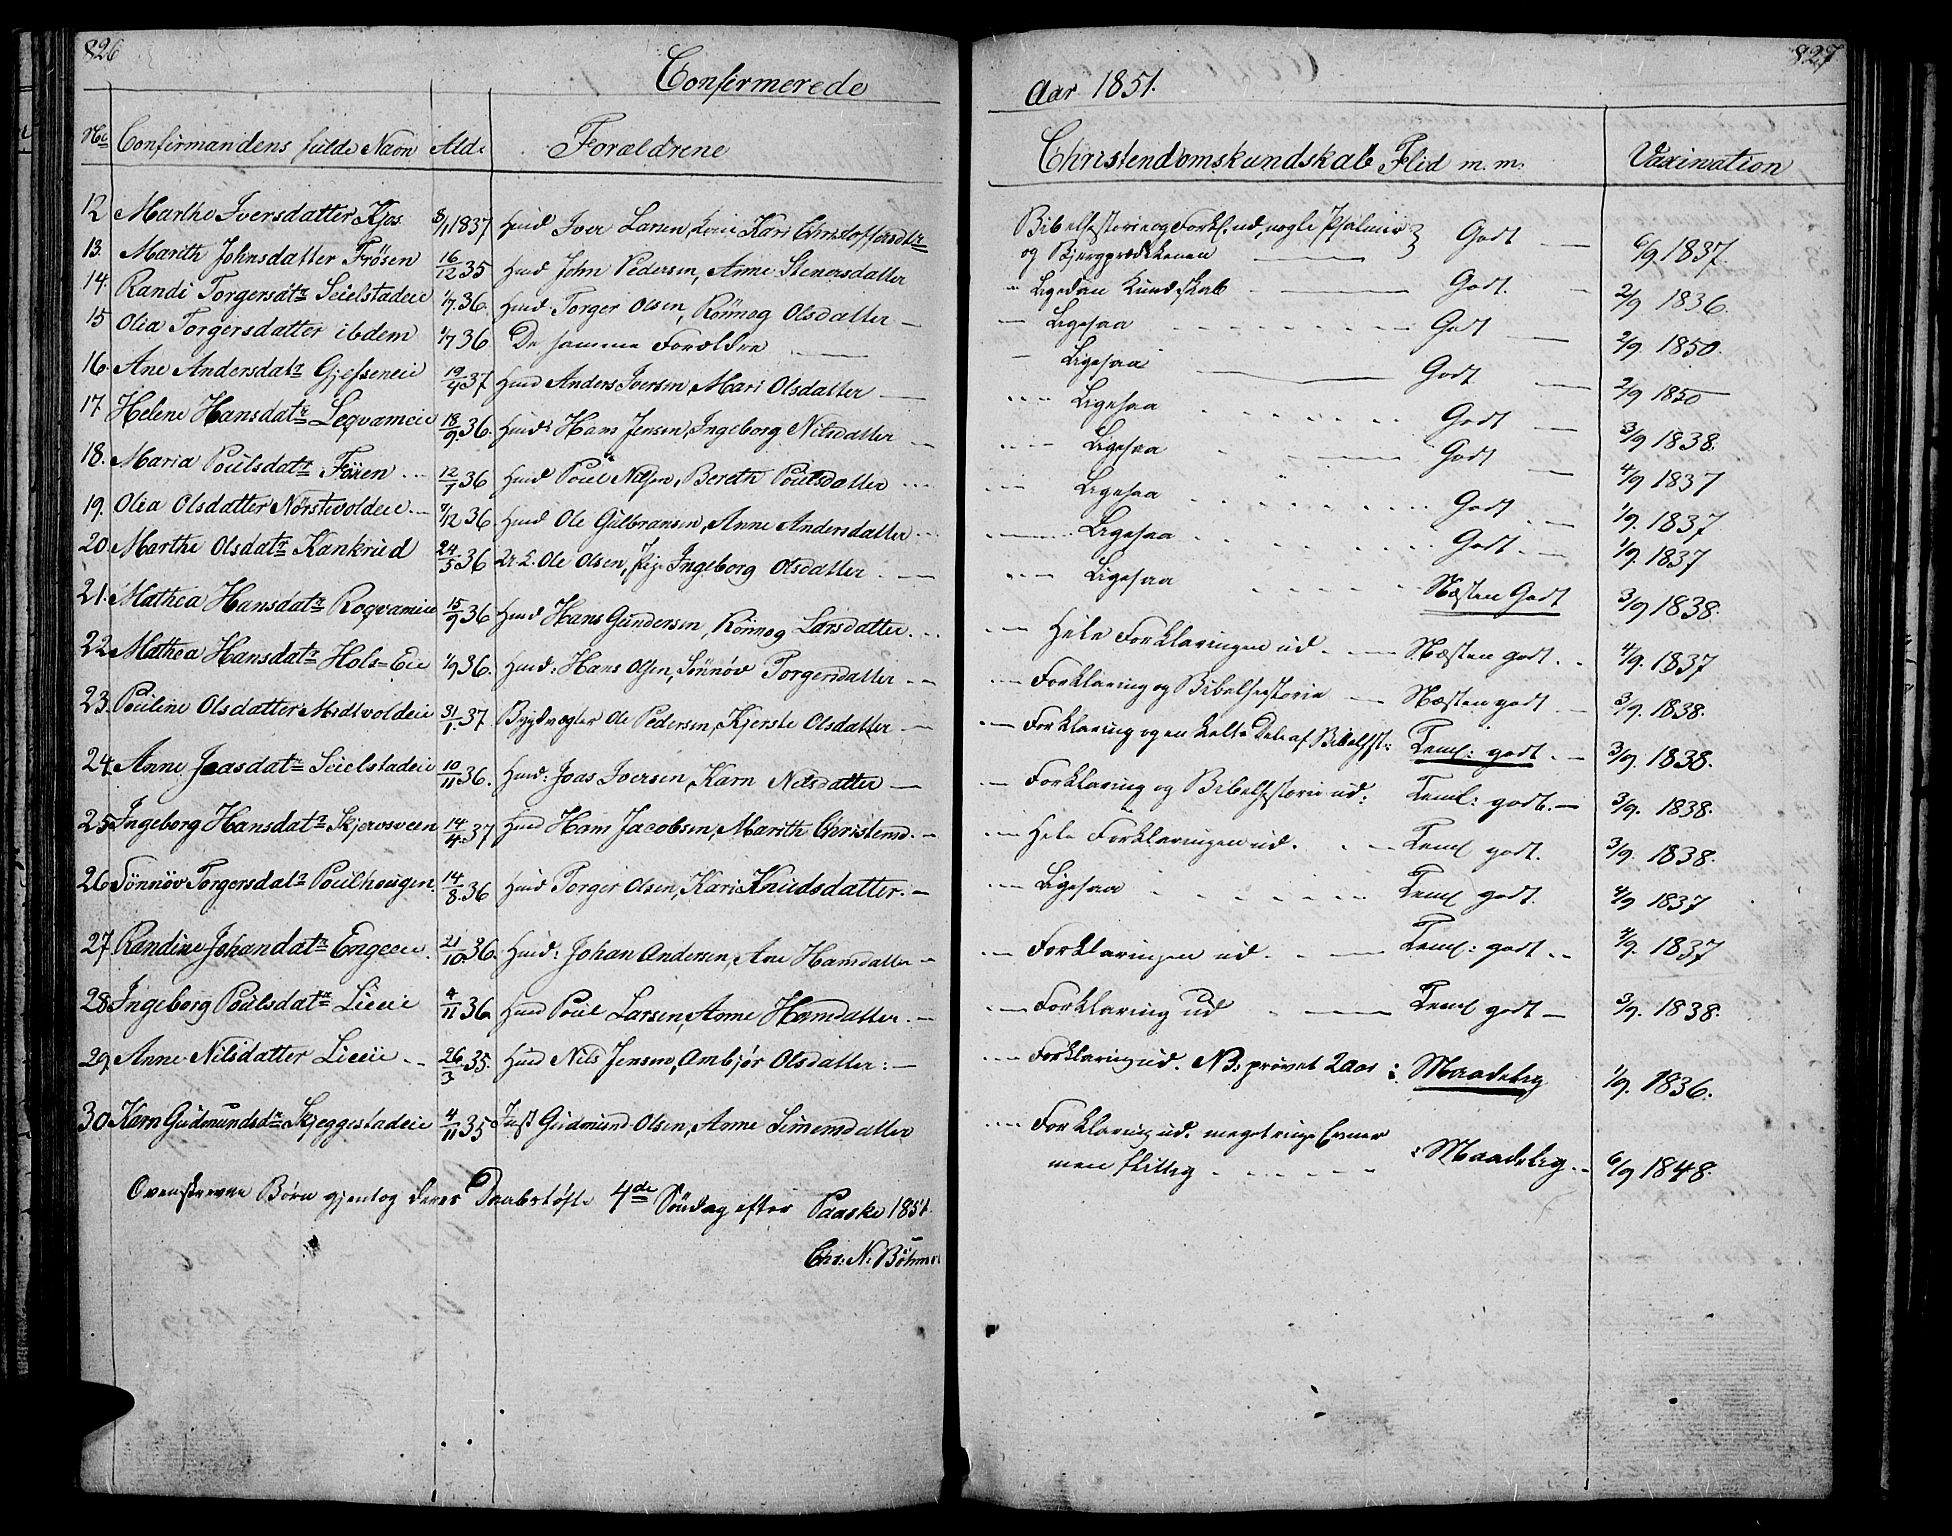 826
Confirmerede
No Confirmandens fulde Navn Ald: Forældrene
12 Marthe Iversdatter Kjos 3/1 1837 Huusd Iver Larsen, Kari Christoffersdtr
13. Marith Johnsdatter Frösen 16/12 35 Huusd John Pedersen, Anne Stenersdatter
14. Randi Torgersdtr Seielstadeie 1/7 36. Huusd Torger Olsen, Rönnog Olsdatter —
15 Olia Torgersdatter ibdem 1/7 36 De samme Forældre —
16. Ane Andersdatr Gjefseneie 19/4 37 Huusd Anders Iversen, Mari Olsdatter —
17 Helene Hansdatr Leqvameie 18/9 36. Huusd: Hans Jensen, Ingeborg Nilsdatter —
18. Maria Poulsdatr Föien 12/7 36 Huusd Poul Berdth Poulsdatter
19. Olia Olsdatter Nörstevoldeie 9/12 36 Huusd Ole Gulbransen, Anne Andersdatter
20. Marthe Olsdatr Kankrud 24/5 36 Ole Olsen, Pige Ingeborg Olsdatter. —
21. Mathea Hansdatr Roqvameie 15/9 36 Huusd Hans Gundersen, Rönnog Larsdatter.
22. Mathea Hansdatr Hols=Eie 1/9 36. Huusd: Hans Olsen, Sönnöv Torgersdatter
23. Pouline Olsdatter Midtvoldeie 31/1. 37 Bygdvægter Ole Pedersen, Kjerste Olsdatter —
24. Anne Joasdatr Seielstadeie 10/11 36. Huusd: Joas Iversen, Karn Nilsdatter —
25. Ingeborg Hansdatr Skjervsveen 14/4. 37 Huusd Hans Jacobsen, Marith Christensd. —
26 Sönnöv Torgersdatr Poulhougen 14/8. 36 Huusd Torger Olsen, Kari Knudsdatter. —
27. Randine Johandatr Engeeie. 21/10. 36. Huusd: Johan Andersen, Ane Hansdatter —
28. Ingeborg Poulsdatr Lieeie 4/11 36. Huusd Poul Larsen, Anne Hansdatter. —
29. Anne Nilsdatter Lieeie 26/3 35. Huusd Nils Jensen, Ambjör Olsdatter: —
30. Karn Gudmundsdtr Skjeggestadeie 4/11 35 Inst Gudmund Olsen, Anne Simensdatter
Ovenskrevne Börn gjentog deres Daabslöfte 4de Söndag efter Paaske 1851.
Chr: N. Böhmer
827
Aar 1851.
Christendomskundskab Flid m.m. Vaxination
Bibelhistorie og Forkl. ud, nogle Psalmer
og Bjergprædikenen — Godt — 6/9 1837.
Ligedan Kundskab — Godt. — 2/9 1836.
Ligesaa Godt — 2/9. 1850.
Ligesaa — Godt — 2/9 1850
Ligesaa Godt — 3/9 1838.
Ligesaa Godt — 4/9 1837
Ligesaa Godt — 1/9. 1837
Ligesaa Godt — 1/9. 1837
Ligesaa Næsten Godt 3/9 1838.
Hele Forklaringen ud. — Næsten godt. 4/9. 1837
Forklaring og Bibelhistorie — Næsten godt — 3/9. 1838.
Forklaring og en halv Deel af Bibelhist: Teml: godt. — 3/9. 1838.
Forklaring og Bibelhistorie ud: Teml: godt. — 3/9. 1838.
Hele Forklaringen ud. Teml godt. 3/9. 1838.
Ligesaa Teml godt. 4/9 1837
Forklaringen ud. Teml: godt 4/9. 1837
Forklaring ud — Teml godt — 3/9. 1838.
Forklaring ud. NB: prövet 2 Aar: Maadelig 1/9. 1836.
Forklaring ud. meget ringe Evner
men flittig Maadelig. 6/9 1848.